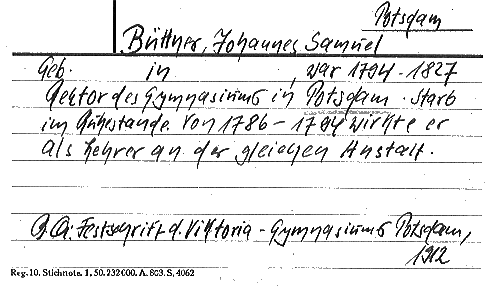 Potsdam
Büttner, Johannes Samuel
Geb. in , war 1794-1827
Rektor des Gymnasiums in Potsdam. Starb
im Ruhestande. Von 1786-1794 wirkte er
als Lehrer an der gleichen Anstalt.
Q.A: Festschrift d. Viktoria-Gymnasiums Potsdam,
1912
Reg. 10. Stichnote. 1. 50. 232000. A. 803. S. 4062